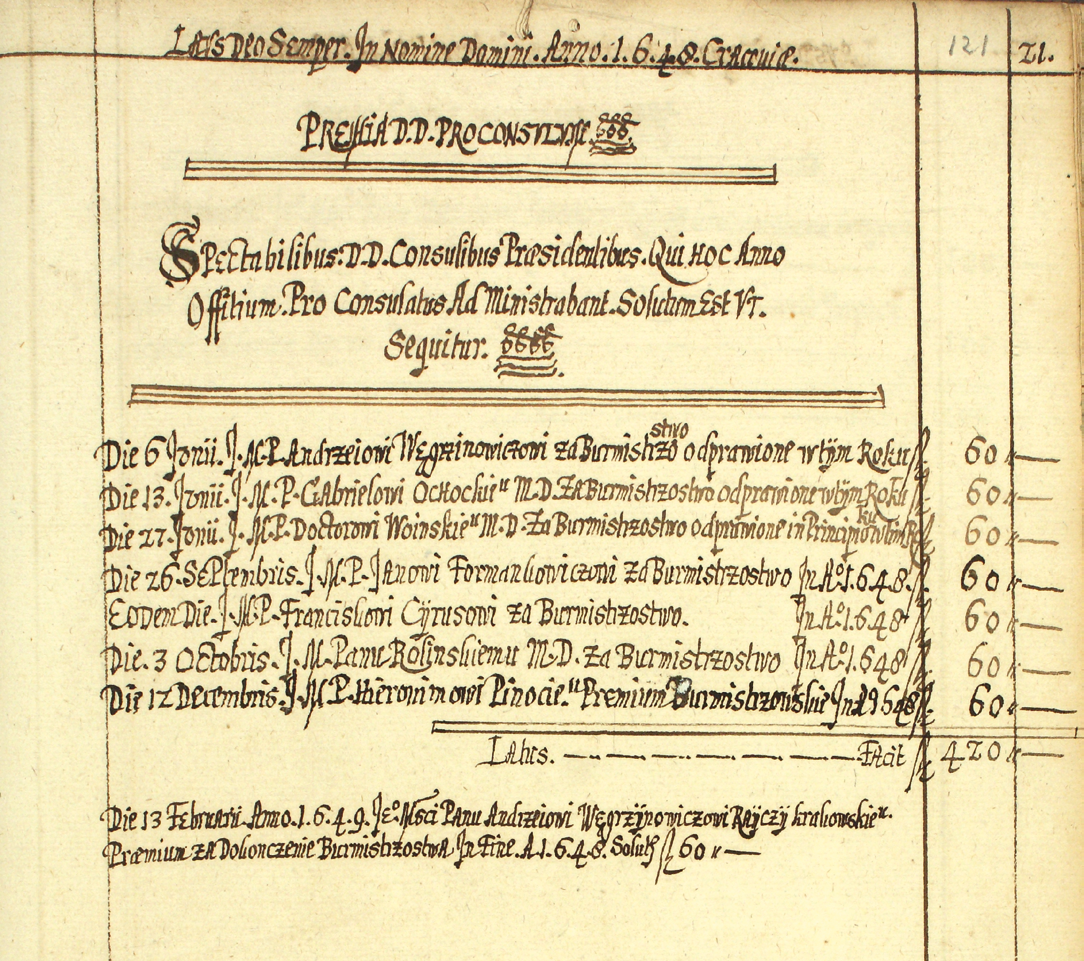 Laus Deo Semper. In Nomine Domini. Anno. 1.6.4.8. Cracoviæ. 121 21.
PREMIA D.D. PROCONSULUM
Spectabilibus: D.D. Consulibus Præsidentibus. Qui Hoc Anno
Offitium. Pro Consulatus Ad Ministrabant. Solutum Est Vt.
Sequitur.
Die 6 Junii. J. M. P. Andrzeiowi Węgrzinowiczowi za Burmistrzostwo odprawione w tÿm Roku fl 60 „—
Die 13. Junii. J. M. P. Gabrielowi Ochockieu M.D. Za Burmistrzostwo odprawione w tÿm Roku fl. 60 „—
Die 27. Junii. J. M. P. Doctorowi Woinskieu M.D. Za Burmistrzostwo odprawione in Principio w tÿm Rku fl 60 „—
Die 26. Septembris. J. M. P. Janowi Formankowiczowi za Burmistrzostwo In Ao. 1.6.4.8. fl 60 „—
Eodem Die. J. M. P. Franciskowi Cÿrusowi za Burmistrzostwo. In Ao. 1.6.4.8 fl 60 „—
Die. 3 Octobris. J. M. Panu Rolinskiemu M.D. za Burmistrzostwo In Ao. 1.6.48 fl 60 „—
Die 12 Decembris. J. M. P. Hieronimowi Pinocieu Premium Burmistrzowskie In Ao 1648 fl. 60 „—
Latus. — — — — — — Facit fl 420 „—
Die 13 Februarii. Anno. 1.6.4.9. Jeo. Mści Panu Andrzeiowi Węgrzÿnowiczowi Raÿczÿ krakowskieu.
Præmium za Dokonczenie Burmistrzostwa In Fine. A. 1.6.4.8. Solut fl 60 „—